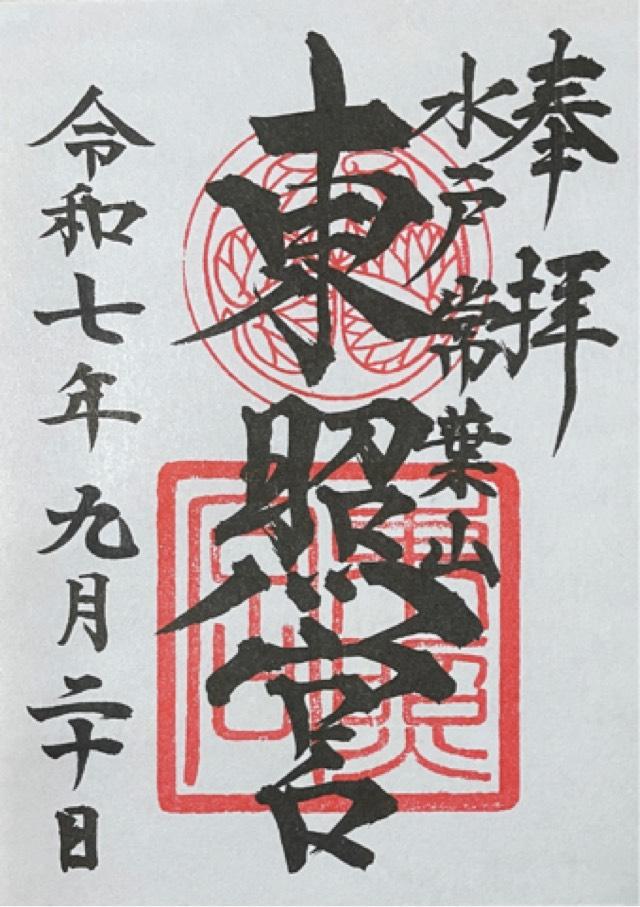 奉拝
水戸常葉山
東照宮
令和七年九月二十日